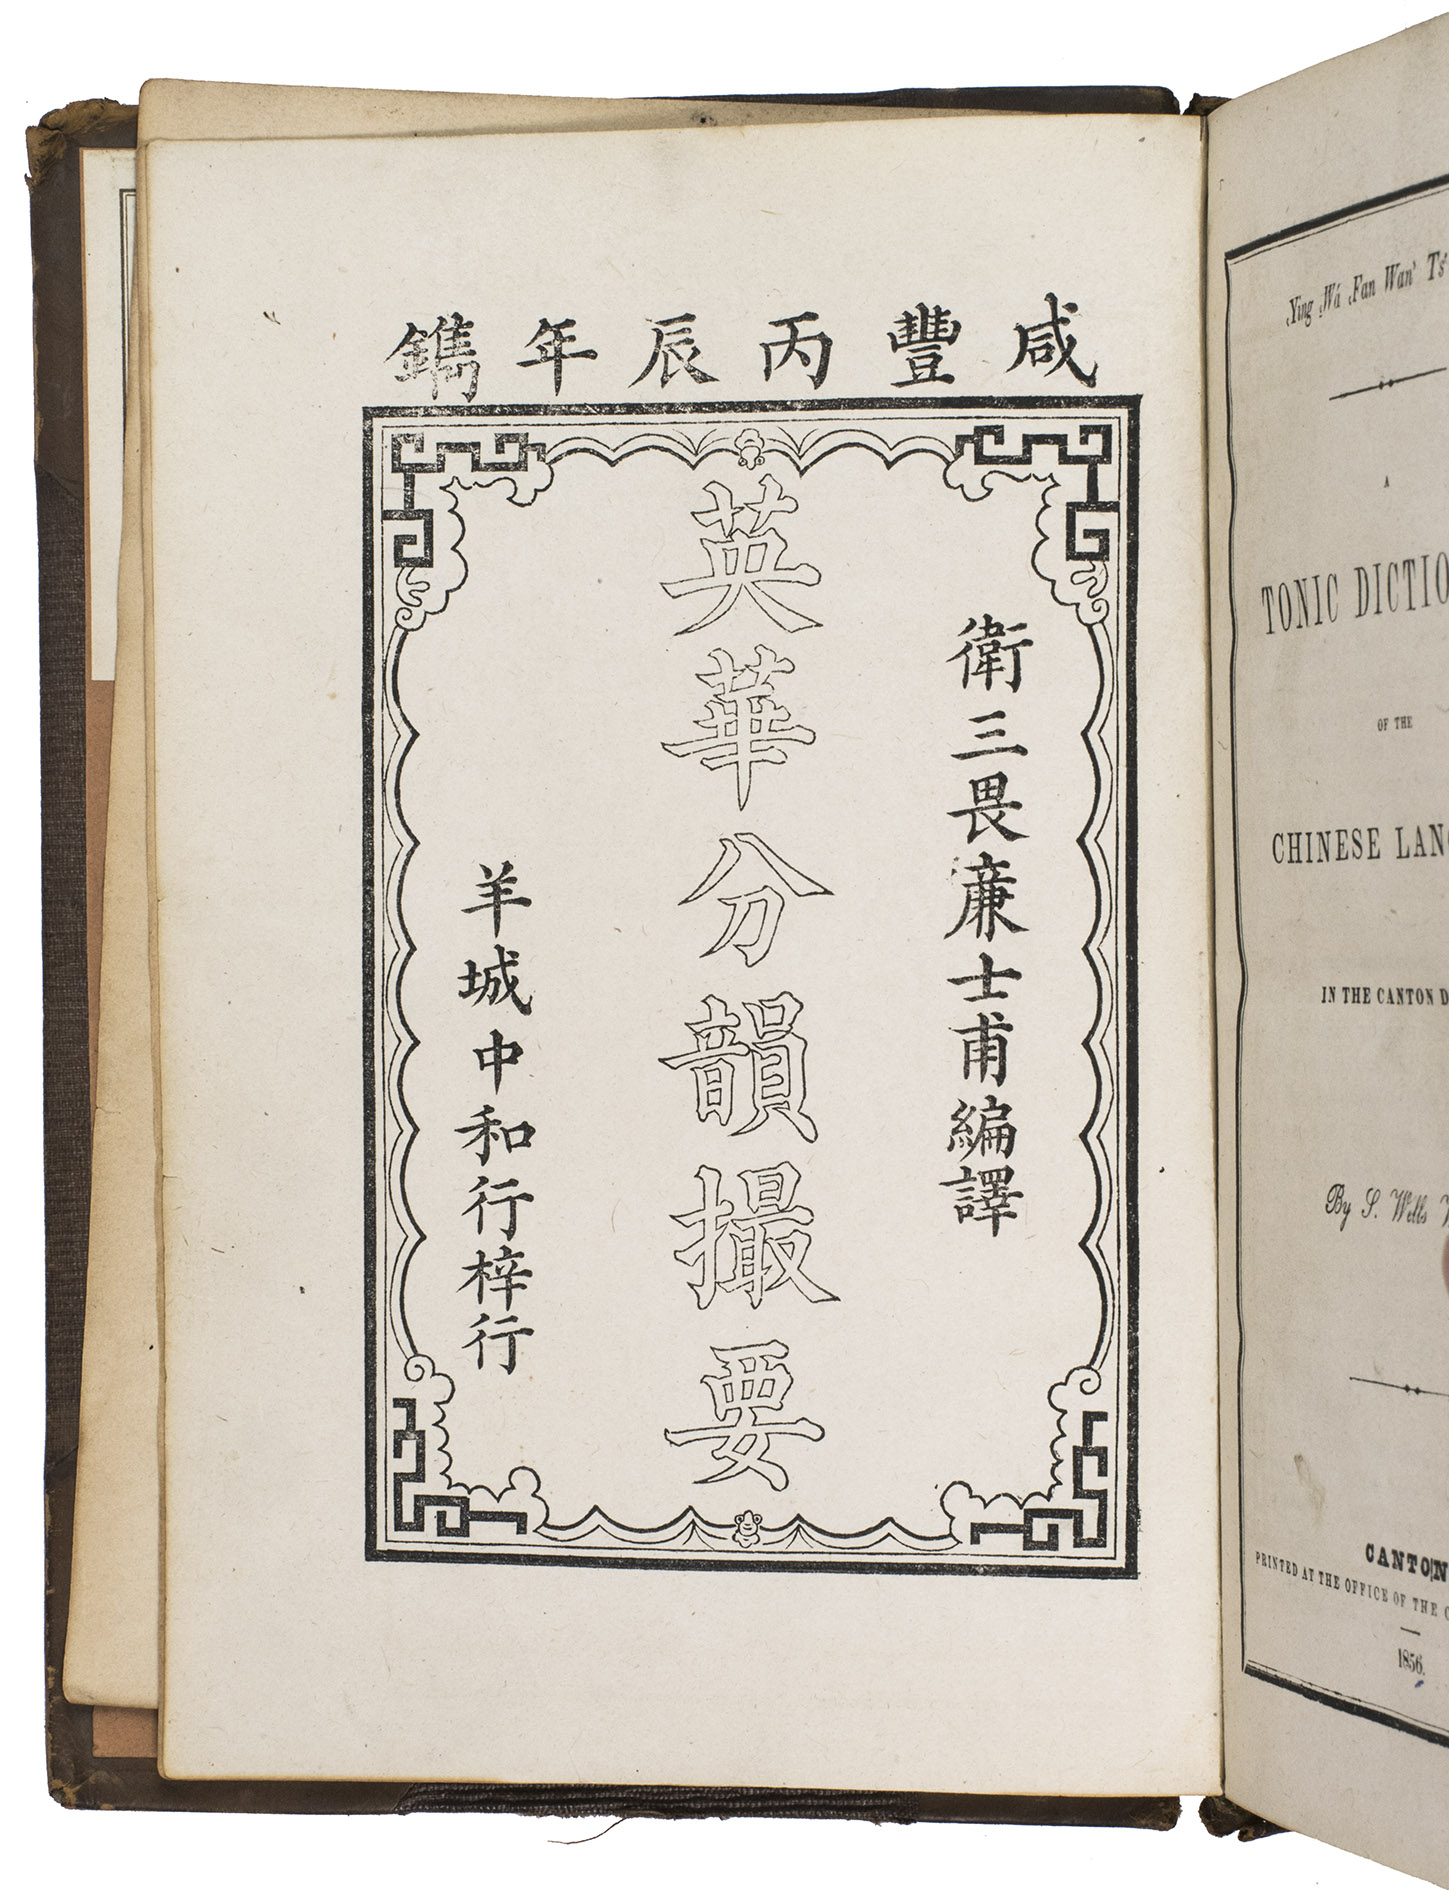 咸豐丙辰年鐫
衛三畏廉士甫編譯
英華分韻撮要
羊城中和行梓行
Ying Wá Fan Wan' Ts'
A
TONIC DICTIO
OF THE
CHINESE LAN
IN THE CANTON D
By S. Wells W
CANTON
PRINTED AT THE OFFICE OF THE C
1856.